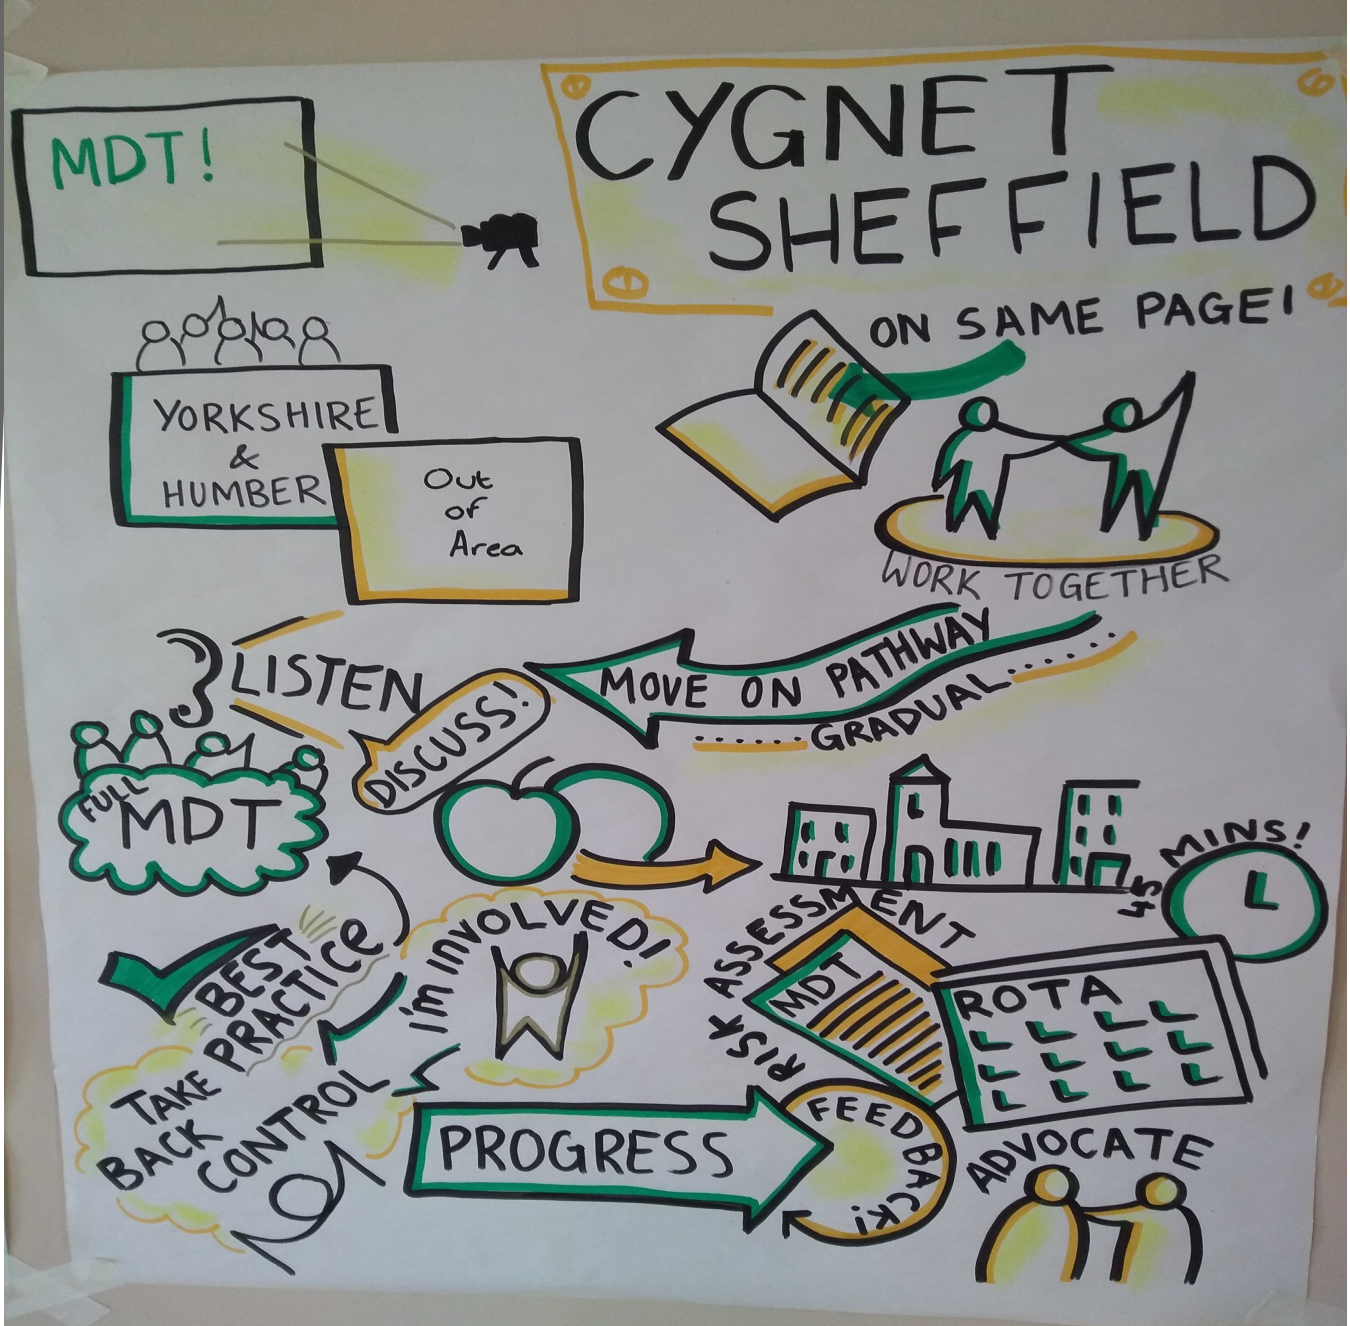 MDT!
CYGNET
SHEFFIELD
ON SAME PAGE!
YORKSHIRE
&
HUMBER
Out
of
Area
WORK TOGETHER
LISTEN
DISCUSS!
MOVE ON PATHWAY
GRADUAL
FULL
MDT
45 MINS!
BEST
PRACTICE
I'M INVOLVED!
RISK ASSESSMENT
MDT
ROTA
TAKE
BACK
CONTROL
PROGRESS
FEEDBACK!
ADVOCATE